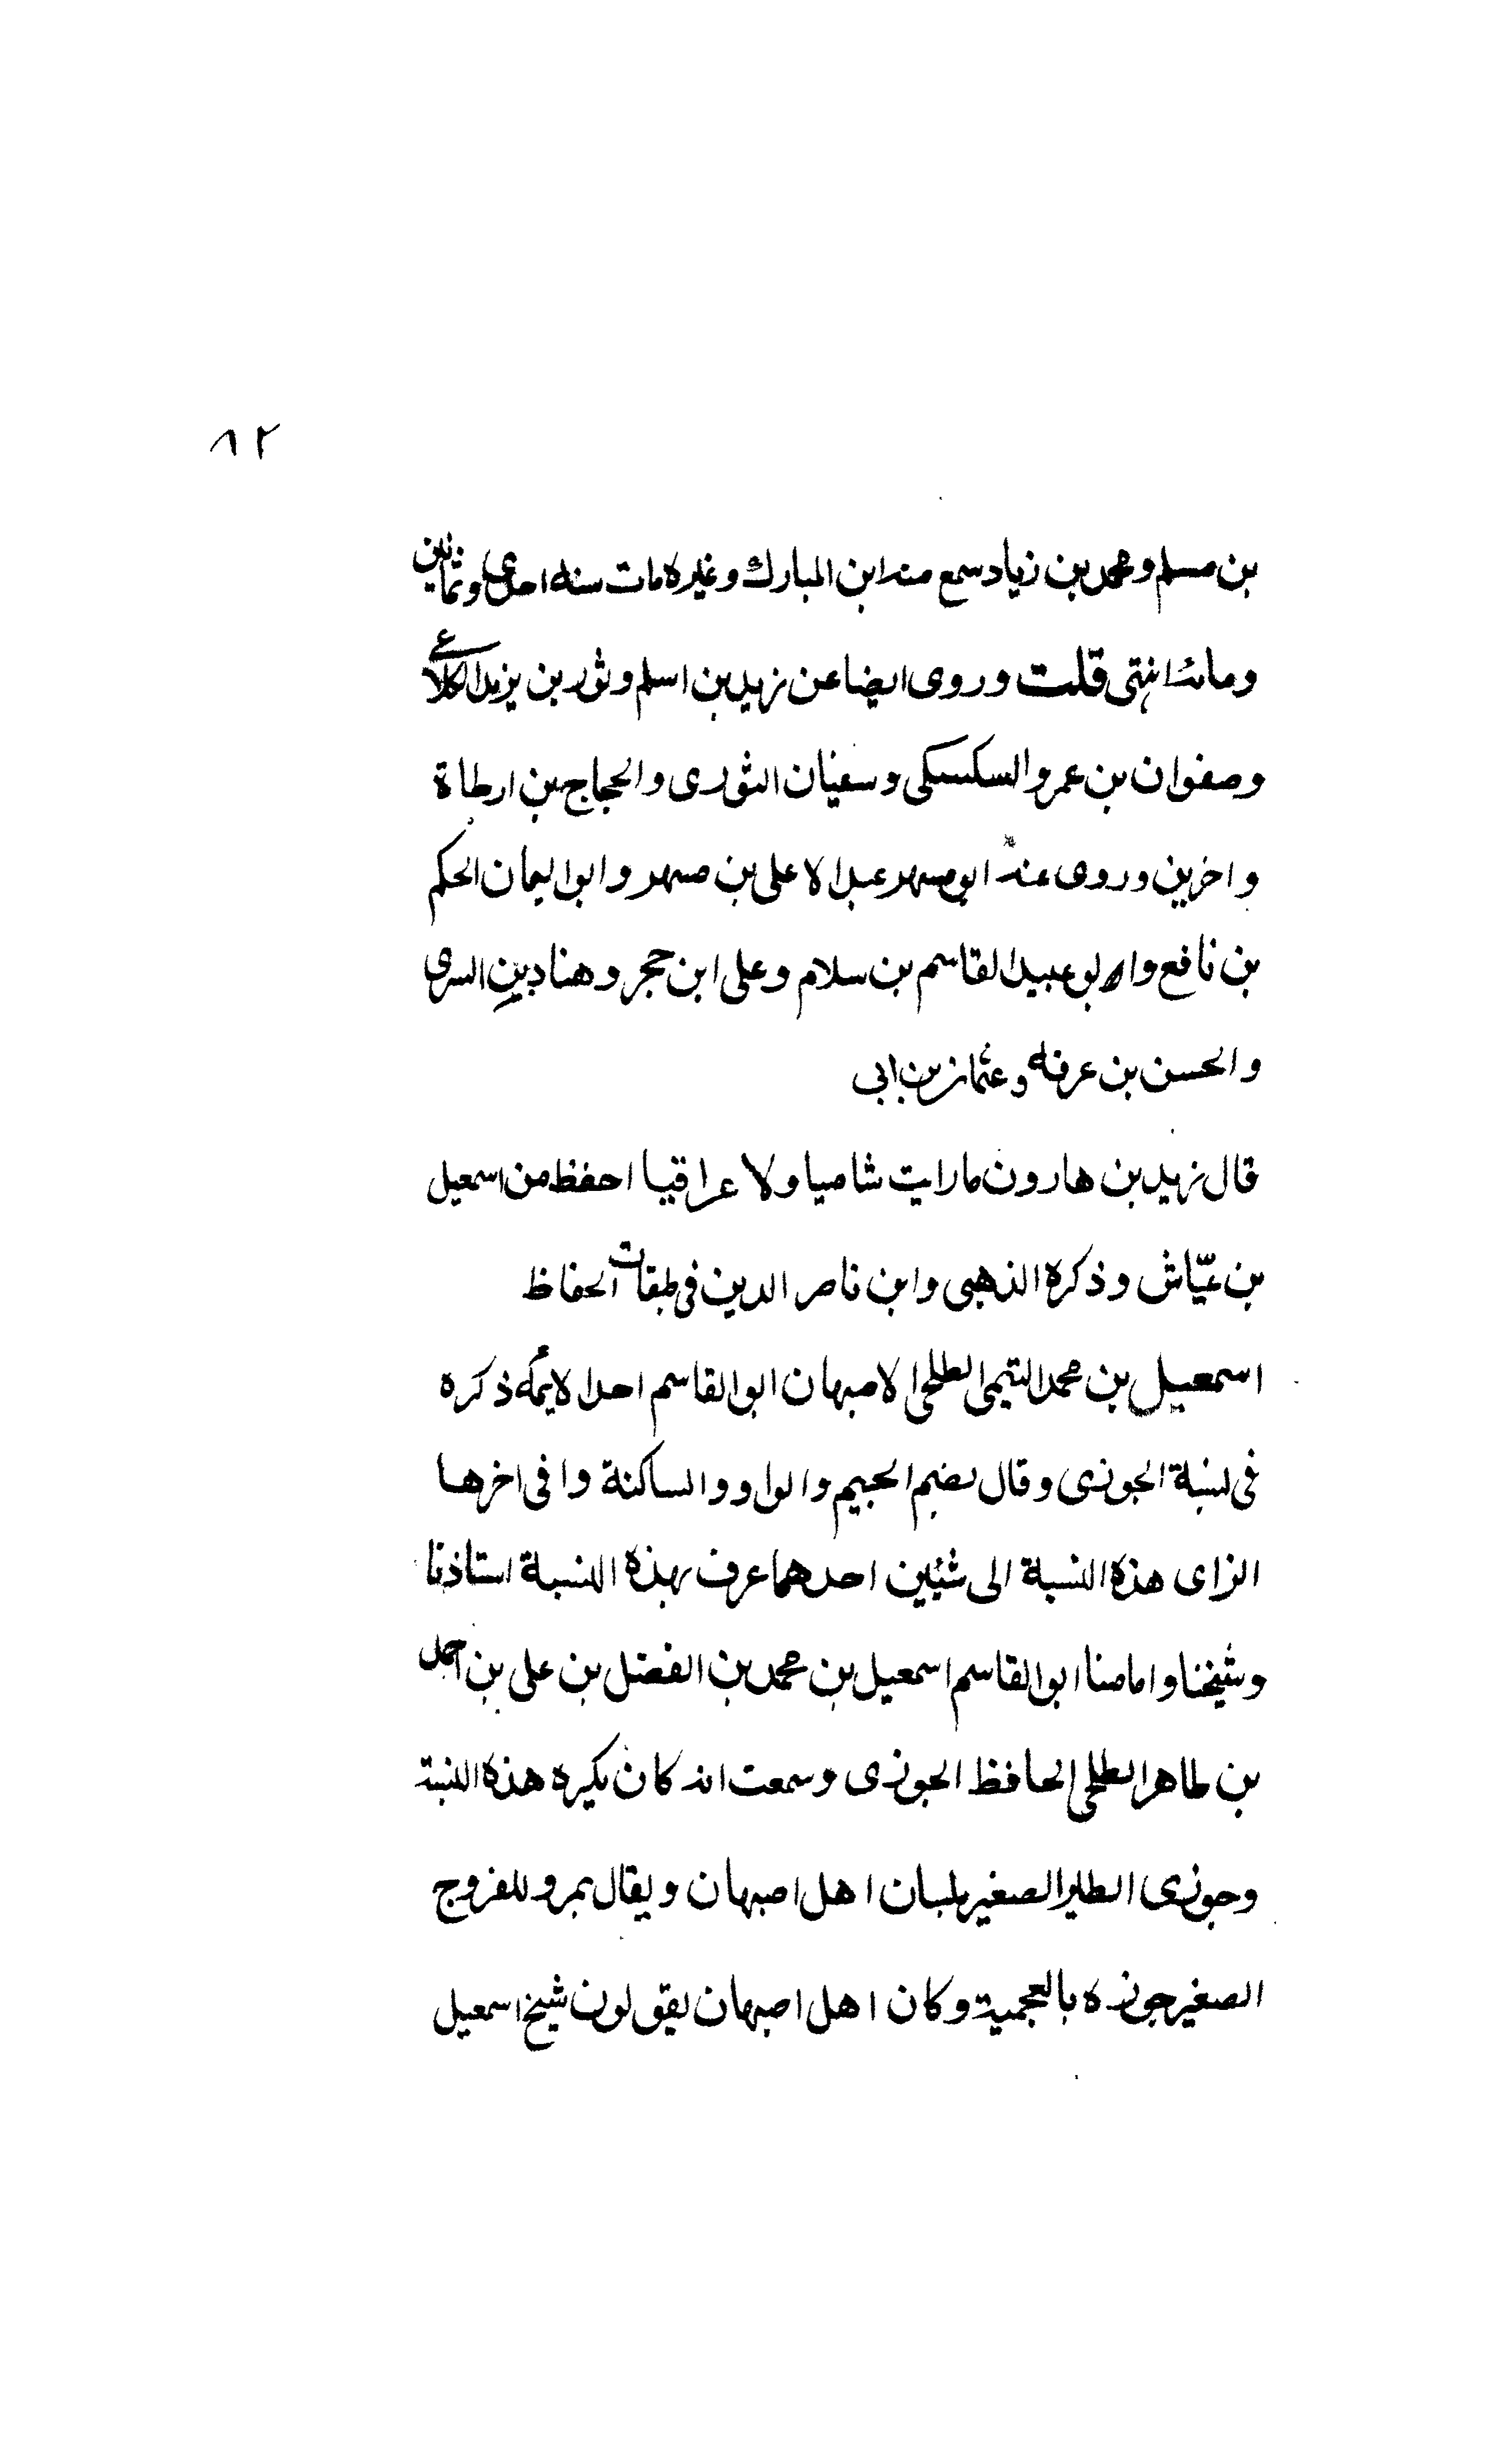 ٨٢
بن مسلم ومحمد بن زياد سمع منه ابن المبارك وغيره مات سنه احدى وثمانين
ومائة انتهى قلت وروى ايضا عن زيد بن اسلم وثور بن يزيد الكلاعي
وصفوان بن عمرو السكسكى وسفيان الثورى والحجاج بن ارطاة
واخرين وروى عنه ابو مسهر عبد الاعلى بن مسهر وابو اليمان الحكم
بن نافع وا ابو عبيد القاسم بن سلام وعلى ابن حجر وهناد بن السرى
والحسن بن عرفه وعثمان بن ابى
قال يزيد بن هارون مارايت شاميا ولا عراقيا احفظ من اسمعيل
بن عيّاش وذكره الذهبى وابن ناصر الدين فى طبقات الحفاظ
اسمعيل بن محمد التيمى الطلحى الاصبهان ابو القاسم احد الايمه ذكره
فى نسبة الجوزى وقال بضم الجيم والواو والساكنة وا فى اخرها
الزاى هذه النسبة الى شيئين احدهما عرف بهذه النسبة استاذنا
وشيخنا وامامنا ابو القاسم اسمعيل بن محمد بن الفضل بن على بن احمد
بن طاهر الطلحى الحافظ الجوزى وسمعت انه كان يكره هذه النسبة
وجوزى الطير الصغير بلسان اهل اصبهان ويقال بمرو للفروج
الصغير جوزه بالعجمية وكان اهل اصبهان يقولون شيخ اسمعيل